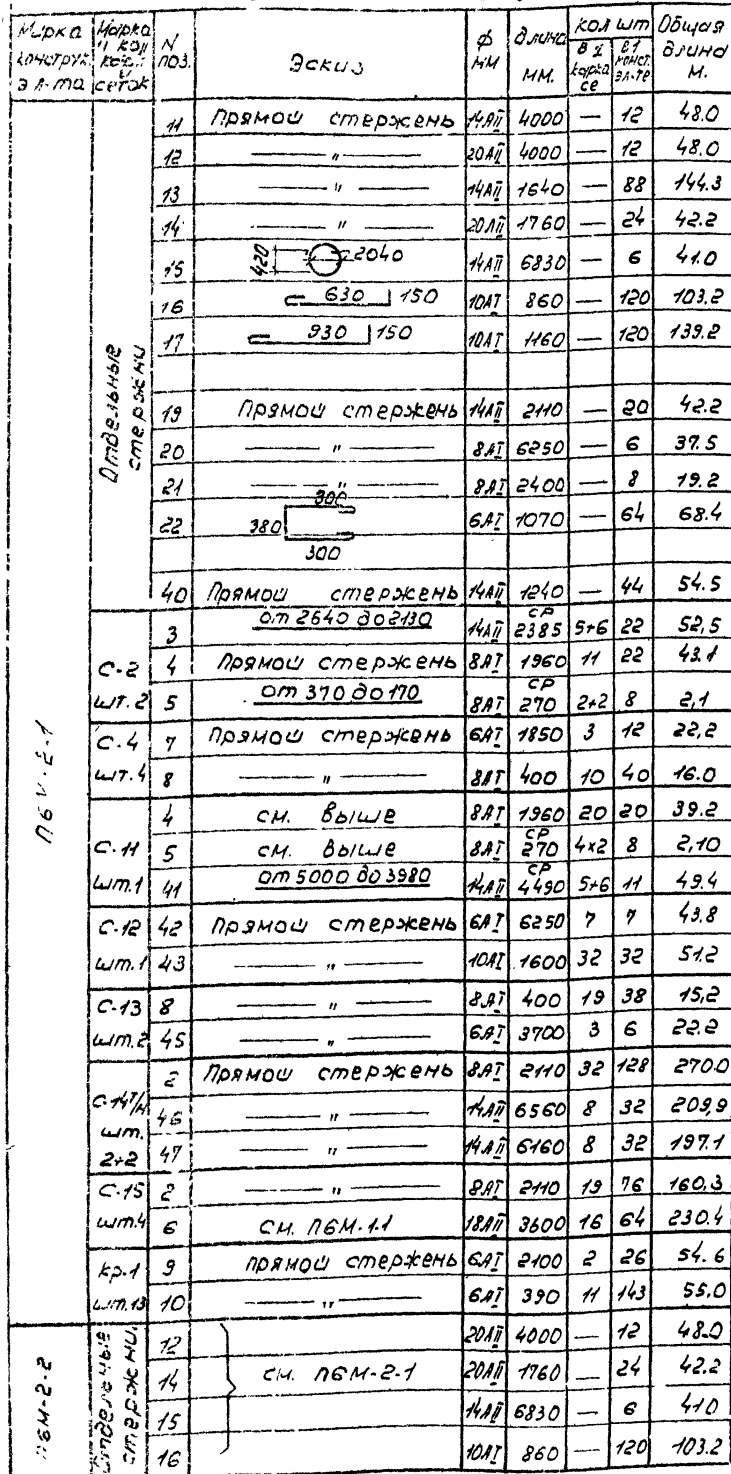 Марка конструк. эл-та | Марка и кол. карк. и сеток | N поз. | Эскиз | ф мм | длина мм. | кол шт | Общая длина м.
в 1 каркасе | в 1 конст. эл-те
Отдельные стержни
11 Прямой стержень 14АII 4000 — 12 48.0
12 — " — 20АII 4000 — 12 48.0
13 — " — 14АII 1640 — 88 144.3
14 — " — 20АII 1760 — 24 42.2
15 420 2040 14АII 6830 — 6 41.0
16 630 150 10АI 860 — 120 103.2
17 930 150 10АI 1160 — 120 139.2
19 Прямой стержень 14АII 2110 — 20 42.2
20 — " — 8АI 6250 — 6 37.5
21 — " — 8АI 2400 — 8 19.2
22 300 380 300 6АI 1070 — 64 68.4
40 Прямой стержень 14АII 1240 — 44 54.5
3 от 2640 до 2130 14АII ср 2385 5+6 22 52,5
С-2 4 Прямой стержень 8АI 1960 11 22 43.1
шт. 2 5 от 370 до 170 8АI ср 270 2+2 8 2,1
С.4 7 Прямой стержень 6АI 1850 3 12 22,2
шт. 4 8 — " — 8АI 400 10 40 16.0
4 см. выше 8АI 1960 20 20 39.2
С.11 5 см. выше 8АI ср 270 4х2 8 2,10
шт.1 41 от 5000 до 3980 14АII ср 4490 5+6 11 49.4
С-12 42 Прямой стержень 6АI 6250 7 7 43.8
шт.1 43 — " — 10АI 1600 32 32 51.2
С-13 8 — " — 8АI 400 19 38 15,2
шт.2 45 — " — 6АI 3700 3 6 22.2
2 Прямой стержень 8АI 2110 32 128 270.0
С-14т/н 46 — " — 14АII 6560 8 32 209,9
шт. 2+2 47 — " — 14АII 6160 8 32 197.1
С-15 2 — " — 8АI 2110 19 76 160,3
шт.4 6 см. П6М-1.1 18АII 3600 16 64 230.4
кр.1 9 прямой стержень 6АI 2100 2 26 54.6
шт.13 10 — " — 6АI 390 11 143 55.0
П6М-2-2
Отдельные стержни.
12 20АII 4000 — 12 48.0
14 см. П6М-2-1 20АII 1760 — 24 42.2
15 14АII 6830 — 6 41.0
16 10АI 860 — 120 103.2